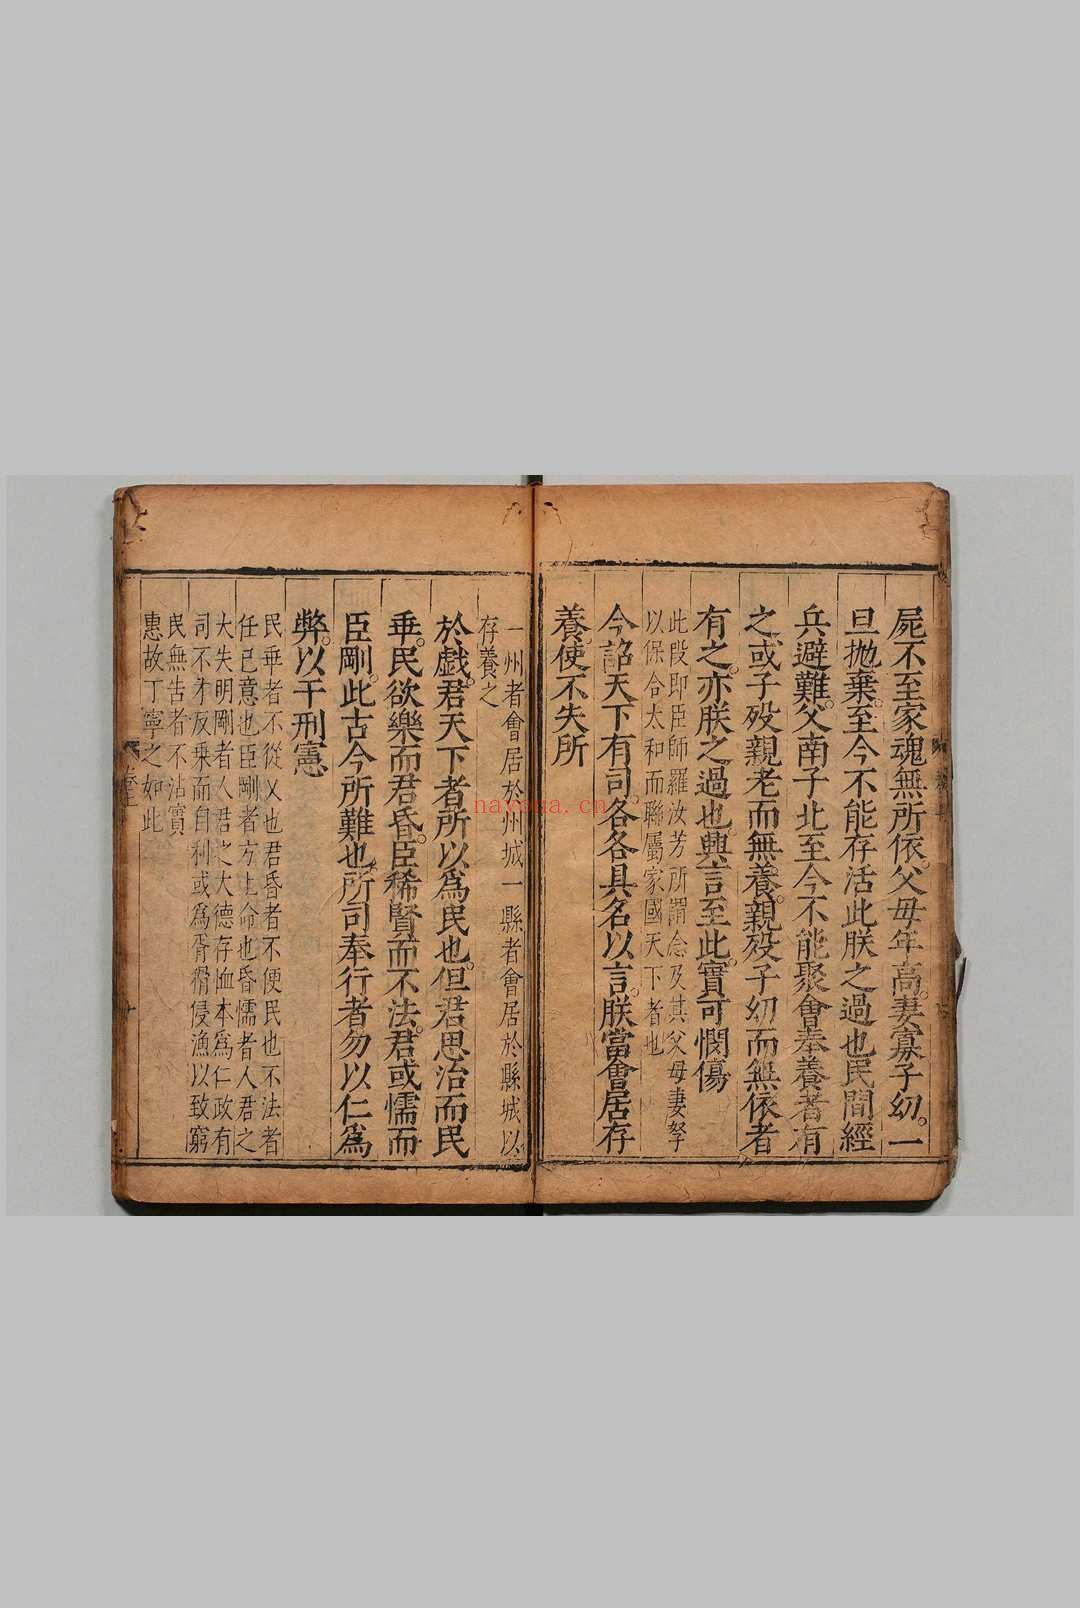 屍不至家魂無所依。父母年高。妻寡子幼。一
旦抛棄。至今不能存活此朕之過也民間經
兵避難。父南子北至今不能聚會奉養者有
之。或子歿親老而無養。親歿子幼而無依者
有之。亦朕之過也。興言至此。實可憫傷
此段即臣師羅汝芳所謂念及其父母妻孥
以保合太和而聯屬家國天下者也
今詔天下有司。各各具名以言。朕當會居存
養。使不失所
一州者會居於州城一縣者會居於縣城以
存養之
於戲。君天下者所以為民也。但君思治而民
乖。民欲樂而君昏。臣稀賢而不法。君或懦而
臣剛。此古今所難也。所司奉行者勿以仁為
弊。以干刑憲
民乖者不從乂也君昏者不便民也不法者
任已意也臣剛者方上命也昏懦者人君之
大失明剛者人君之大德存恤本為仁政有
司不才反乗而自利或為胥猾侵漁以致窮
民無告者不沾實
惠故丁寧之如此
nayona.cn